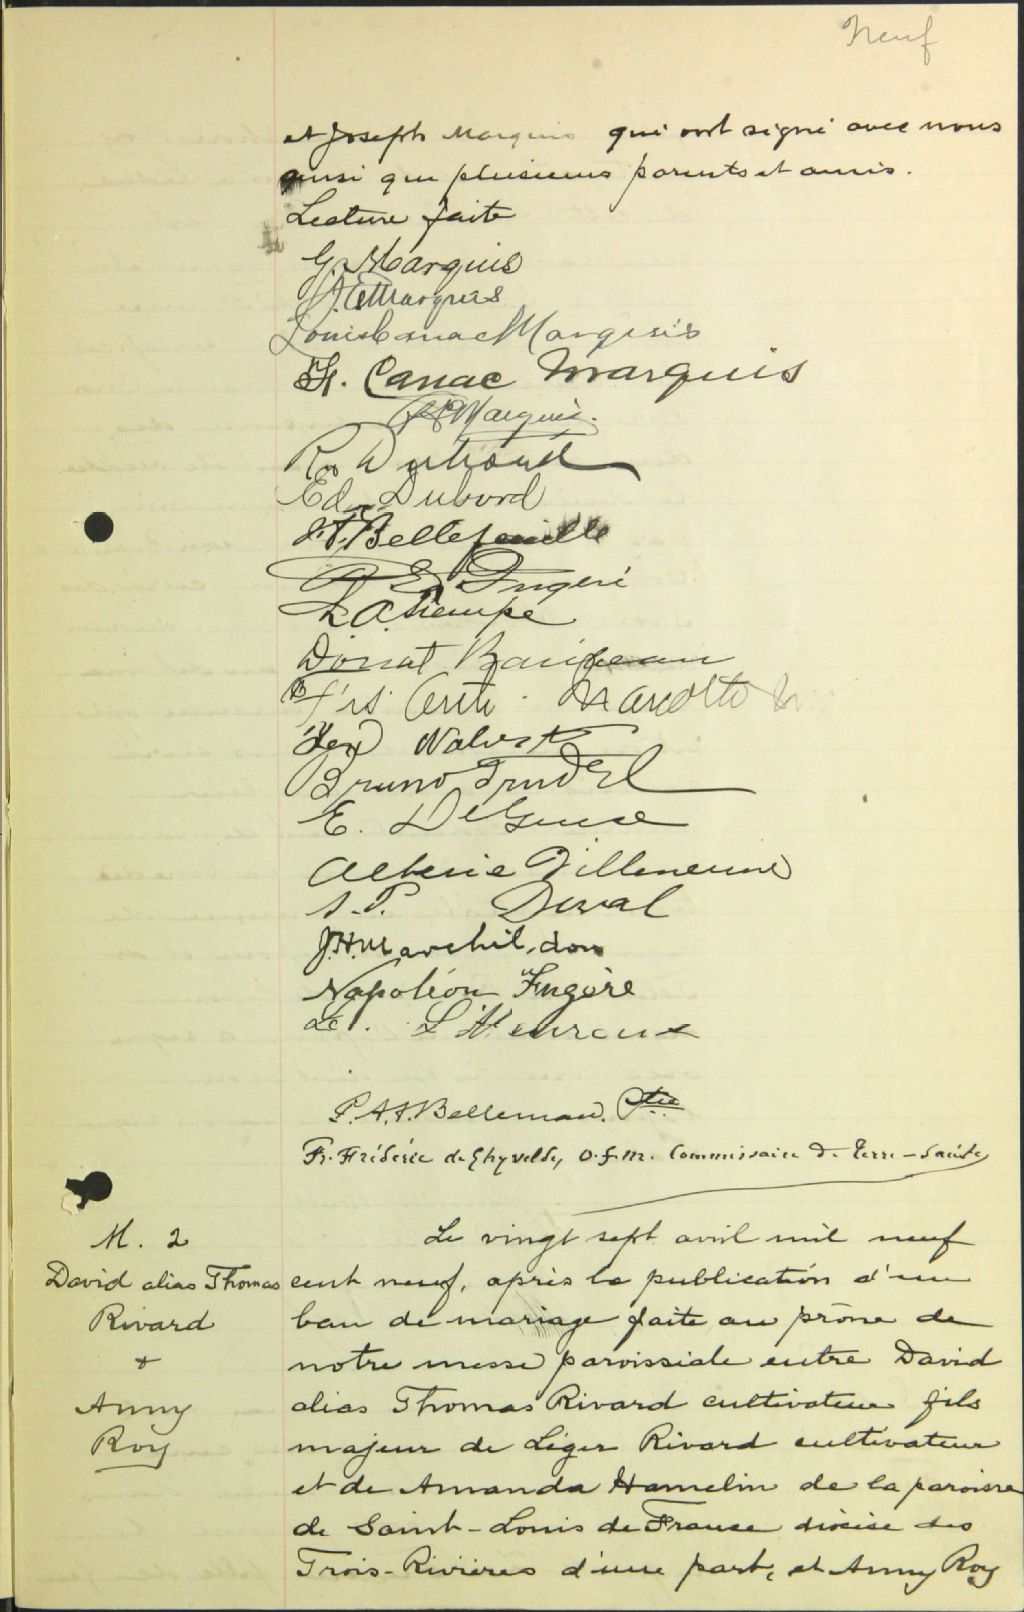 Neuf
et Joseph Marquis qui ont signé avec nous
ainsi que plusieurs parents et amis.
Lecture faite
G. Marquis
Marquis
Louis Canac Marquis
H. Canac Marquis
Marquis
R. Dutrand
Ed. Dubord
Bellefeuille
Fugère
Trempe
Donat Baribeau
Frs Arth. Marcotte
Bruno Trudel
E. DeGuise
Alberic Villeneuve
Duval
J.H. Marchildon
Napoléon Fugère
L'Heureux
P.A.A. Bellemare, Ptre
Fr. Fréderic de Ghyvelde, O.f.m. Commissaire de Terre-Sainte
M. 2
David alias Thomas
Rivard
&
Anny
Roy
Le vingt sept avril mil neuf
cent neuf, après la publication d'un
ban de mariage faite au prône de
notre messe paroissiale entre David
alias Thomas Rivard cultivateur fils
majeur de Léger Rivard cultivateur
et de Amanda Hamelin de la paroisse
de Saint-Louis de France diocèse des
Trois-Rivières d'une part, et Anny Roy